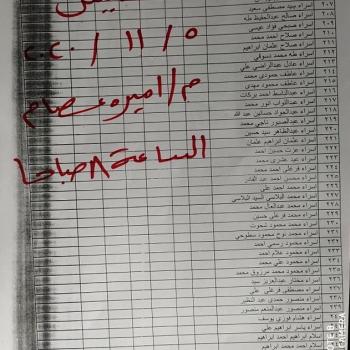 الخميس
٥ / ١١ / ٢٠٢٠
م/ اميره عصام
الساعة ٨ صباحا
٢٠٧ اسراء سيد مصطفى سعيد
٢٠٨ اسراء صالح عبدالحفيظ طه
٢٠٩ اسراء صبحى فؤاد عيسى
٢١٠ اسراء صلاح احمد محمد
٢١١ اسراء صلاح عثمان ابراهيم
٢١٢ اسراء طه محمد دسوقى
٢١٣ اسراء عادل عبدالراضى على
٢١٤ اسراء عاطف حمودى محمد
٢١٥ اسراء عاطف محمود مهدى
٢١٦ اسراء عبدالباسط احمد بركات
٢١٧ اسراء عبدالتواب انور محمد
٢١٨ اسراء عبدالجواد حسانين عبد الله
٢١٩ اسراء عبدالصبور ناجى محمد
٢٢٠ اسراء عبدالظاهر سيد حسين
٢٢١ اسراء عثمان ابراهيم عثمان
٢٢٢ اسراء عزت حسين احمد
٢٢٣ اسراء عيد عشرى محمد
٢٢٤ اسراء فرغلى احمد محمد
٢٢٥ اسراء محسن احمد عبد القادر
٢٢٦ اسراء محمد احمد على
٢٢٧ اسراء محمد البلاسى السيد البلاسى
٢٢٨ اسراء محمد عبدالعال محمد
٢٢٩ اسراء محمد فرغلى حسين
٢٣٠ اسراء محمد محمود شحوت
٢٣١ اسراء محمد نوح محمود سطوحى
٢٣٢ اسراء محمود رسمى احمد
٢٣٣ اسراء محمود علام احمد
٢٣٤ اسراء محمود على محمد
٢٣٥ اسراء محمود محمد مرزوق محمد
٢٣٦ اسراء مختار عبدالعزيز سيد
٢٣٧ اسراء مصطفى فرغلى على
٢٣٨ اسراء منصور حمدى عبد النظير
٢٣٩ اسراء منصور عبدالمنعم منصور
٢٤٠ اسراء هشام فوزى يوسف
اسراء ياسر ابراهيم على
اسلام ابراهيم احمد ابراهيم
اسلام احمد محمد ابراهيم